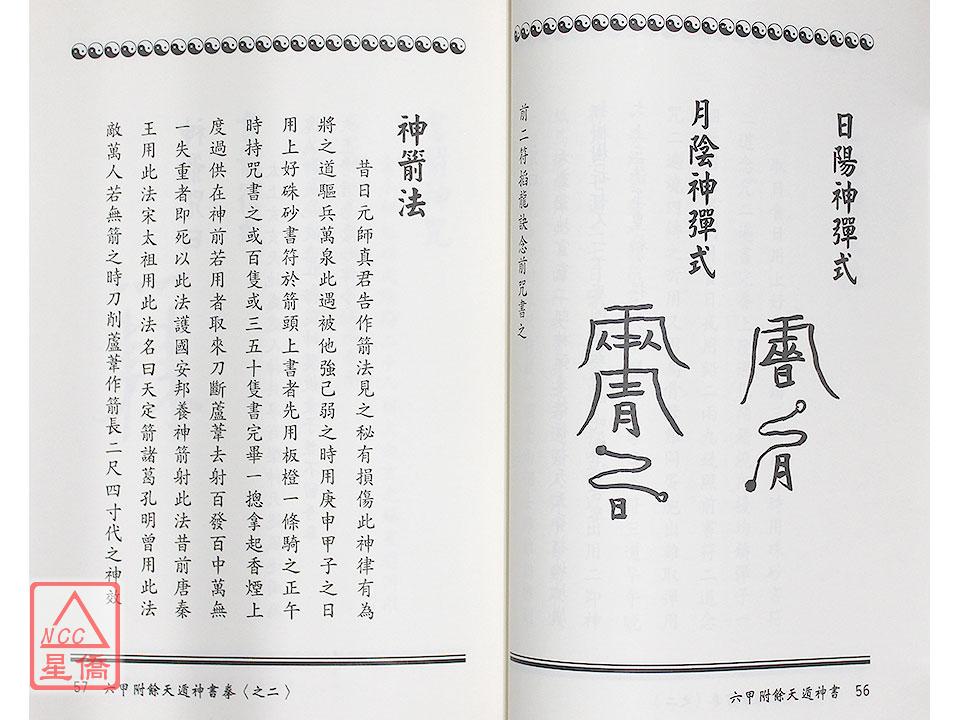 日陽神彈式
月陰神彈式
前二符掐龍訣念前咒書之
六甲附餘天遁神書 56
神箭法
昔日元師真君告作箭法見之秘有損傷此神律有為
將之道驅兵萬泉此遇被他強己弱之時用庚申甲子之日
用上好硃砂書符於箭頭上書者先用板橙一條騎之正午
時持咒書之或百隻或三五十隻書完畢一摠拿起香煙上
度過供在神前若用者取來刀斷蘆葦去射百發百中萬無
一失重者即死以此法護國安邦養神箭射此法昔前唐秦
王用此法宋太祖用此法名曰天定箭諸葛孔明曾用此法
敵萬人若無箭之時刀削蘆葦作箭長二尺四寸代之神效
57 六甲附餘天遁神書拳〈之二〉
NCC
星僑